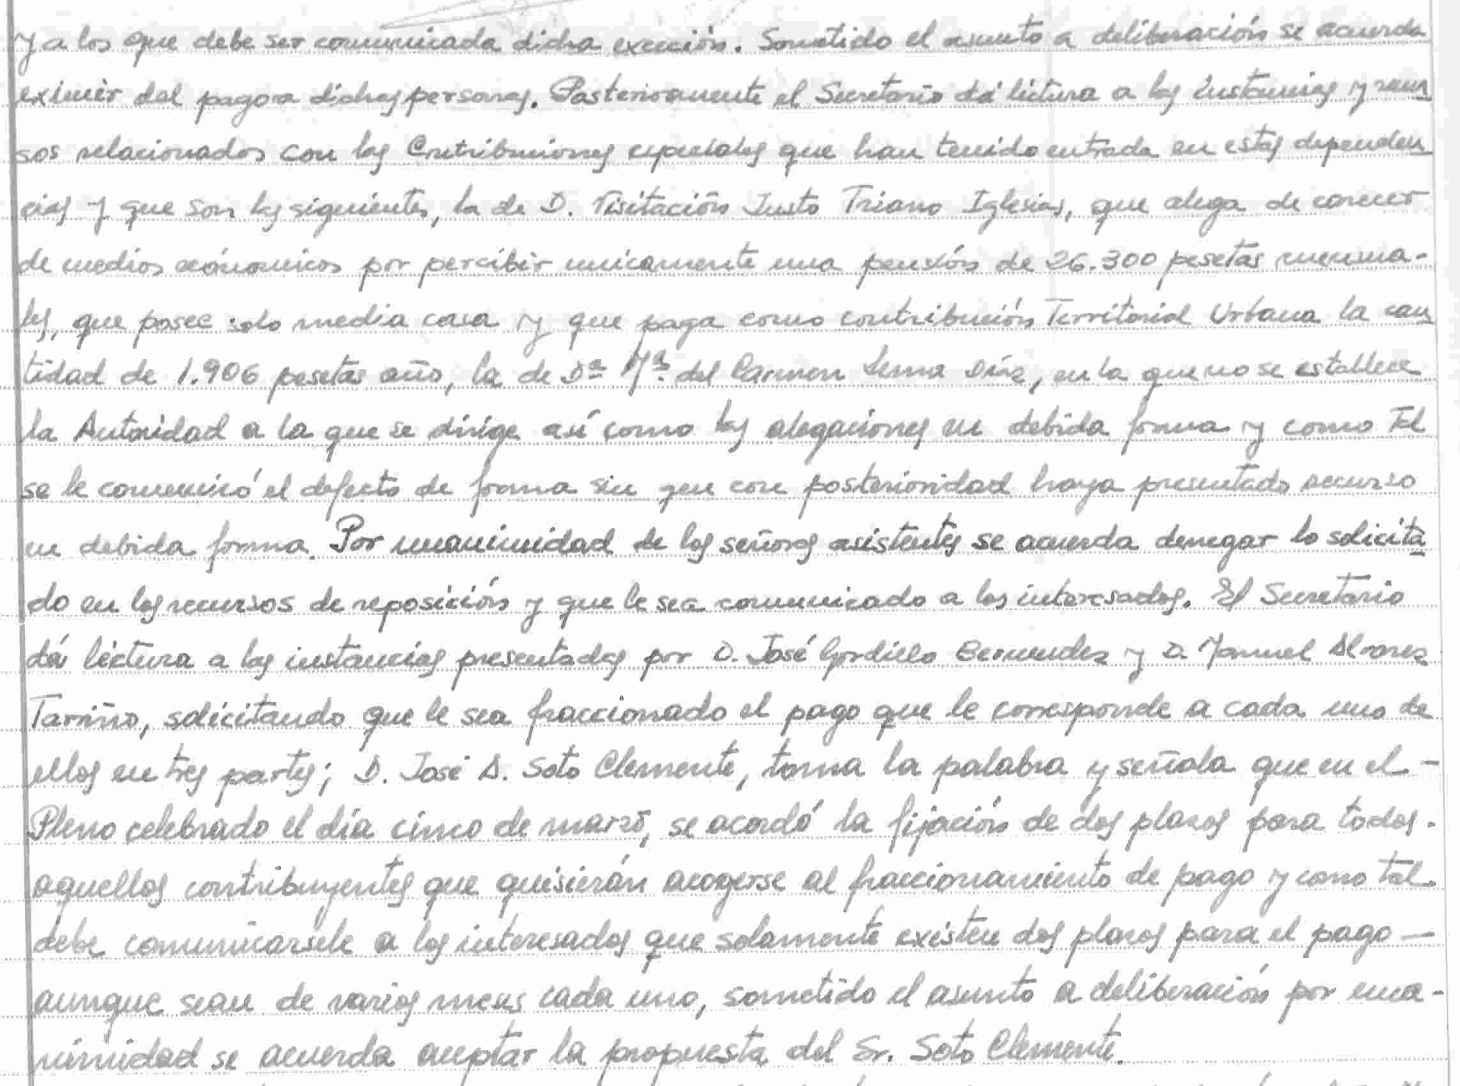 y a los que debe ser comunicada dicha exección. Sometido el asunto a deliberación se acuerda
eximir del pago a dichas personas. Posteriormente el Secretario dá lectura a las instancias y recur
sos relacionados con las Contribuciones especiales que han tenido entrada en estas dependen
cias y que son las siguientes, la de D. Visitación Justo Triano Iglesias, que alega de carecer
de medios económicos por percibir unicamente una pensión de 26.300 pesetas mensua-
les, que posee solo media casa y que paga como contribución Territorial Urbana la can
tidad de 1.906 pesetas año, la de Dª Mª del Carmen Lema Díaz, en la que no se establece
la Autoridad a la que se dirige así como las alegaciones en debida forma y como tal
se le comunicó el defecto de forma sin que con posterioridad haya presentado recurso
en debida forma. Por unanimidad de los señores asistentes se acuerda denegar lo solicita
do en los recursos de reposición y que le sea comunicado a los interesados. El Secretario
dá lectura a las instancias presentadas por D. José Gordillo Bermudez y D. Manuel Alvarez
Tarriño, solicitando que le sea fraccionado el pago que le corresponde a cada uno de
ellos en tres partes; D. José A. Soto Clemente, toma la palabra y señala que en el -
Pleno celebrado el día cinco de marzo, se acordó la fijación de dos plazos para todos.
aquellos contribuyentes que quisierán acogerse al fraccionamiento de pago y como tal
debe comunicarsele a los interesados que solamente existen dos plazos para el pago —
aunque sean de varios meses cada uno, sometido el asunto a deliberación por una-
nimidad se acuerda aceptar la propuesta del Sr. Soto Clemente.